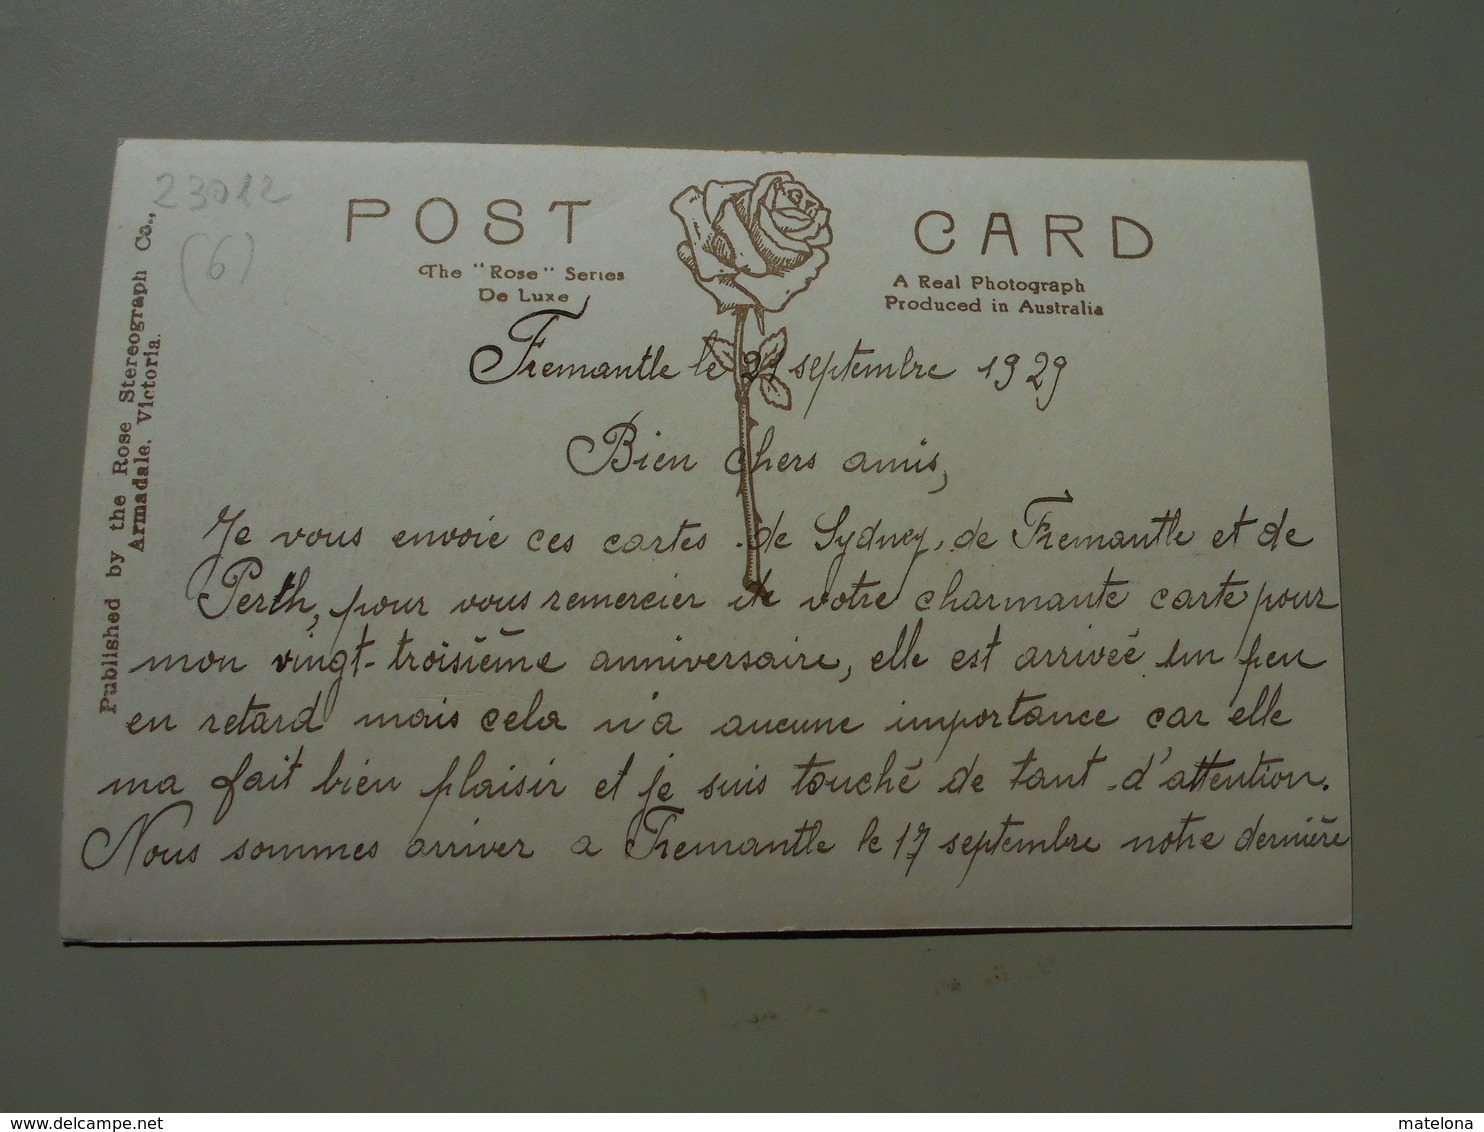 23012
(6)
POST CARD
The "Rose" Series
De Luxe
A Real Photograph
Produced in Australia
Published by the Rose Stereograph Co.,
Armadale. Victoria.
Fremantle le septembre 1929
Bien chers amis,
Je vous envoie ces cartes de Sydney, de Fremantle et de
Perth, pour vous remercier de votre charmante carte pour
mon vingt-troisième anniversaire, elle est arrivée un peu
en retard mais cela n'a aucune importance car elle
ma fait bien plaisir et je suis touché de tant d'attention.
Nous sommes arriver a Fremantle le 17 septembre notre dernière
www.delcampe.net
matelona